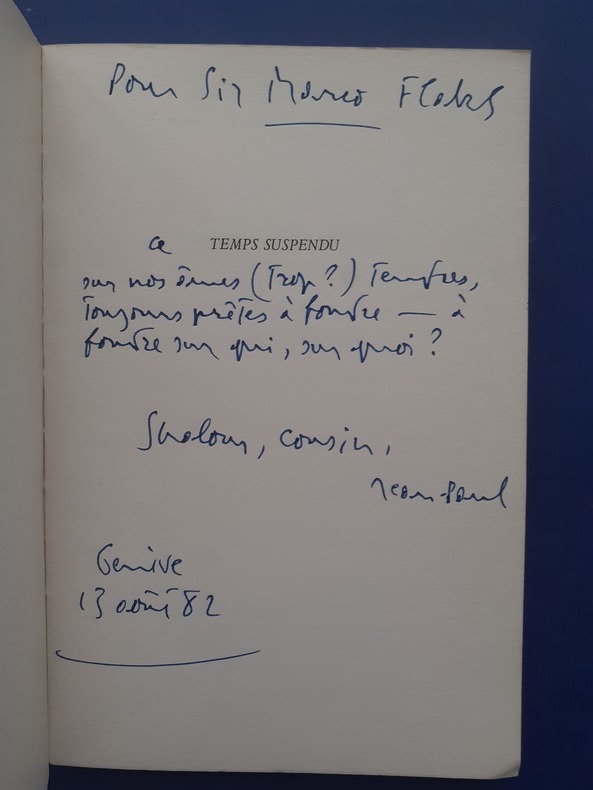 Pour Sir Marco Flaks
ce TEMPS SUSPENDU
sur nos âmes (trop ?) tendres,
toujours prêtes à fondre — à
fondre sur qui, sur quoi ?
Shalom, cousin,
Jean-Paul
Genève
13 août 82